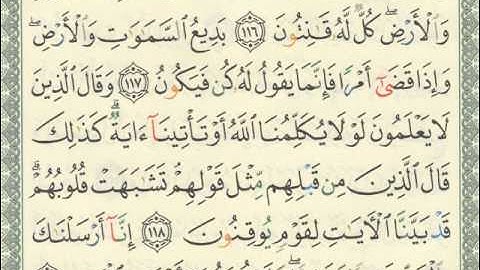 وَالْأَرْضِ ۖ كُلٌّ لَّهُ قَانِتُونَ ﴿١١٦﴾ بَدِيعُ السَّمَاوَاتِ وَالْأَرْضِ ۖ
وَإِذَا قَضَىٰٓ أَمْرًا فَإِنَّمَا يَقُولُ لَهُ كُن فَيَكُونُ ﴿١١٧﴾ وَقَالَ الَّذِينَ
لَا يَعْلَمُونَ لَوْلَا يُكَلِّمُنَا اللَّهُ أَوْ تَأْتِينَآ ءَايَةٌ ۗ كَذَٰلِكَ
قَالَ الَّذِينَ مِن قَبْلِهِم مِّثْلَ قَوْلِهِمْ ۘ تَشَابَهَتْ قُلُوبُهُمْ ۗ
قَدْ بَيَّنَّا الْآيَاتِ لِقَوْمٍ يُوقِنُونَ ﴿١١٨﴾ إِنَّآ أَرْسَلْنَاكَ